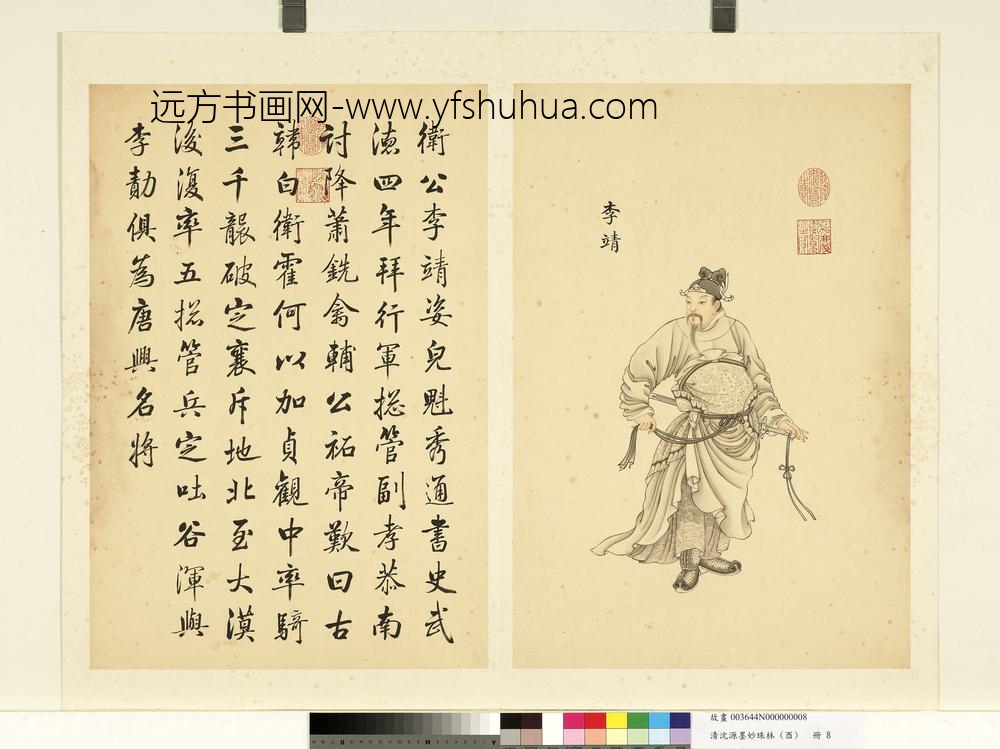 远方书画网-www.yfshuhua.com
李靖
衛公李靖姿皃魁秀通書史武
德四年拜行軍揔管副孝恭南
討降蕭銑禽輔公祏帝歎曰古
韓白衛霍何以加貞觀中率騎
三千襲破定襄斥地北至大漠
後復率五揔管兵定吐谷渾與
李勣俱為唐興名將
故畫 003644N000000008
清沈源墨妙珠林(酉) 冊 8